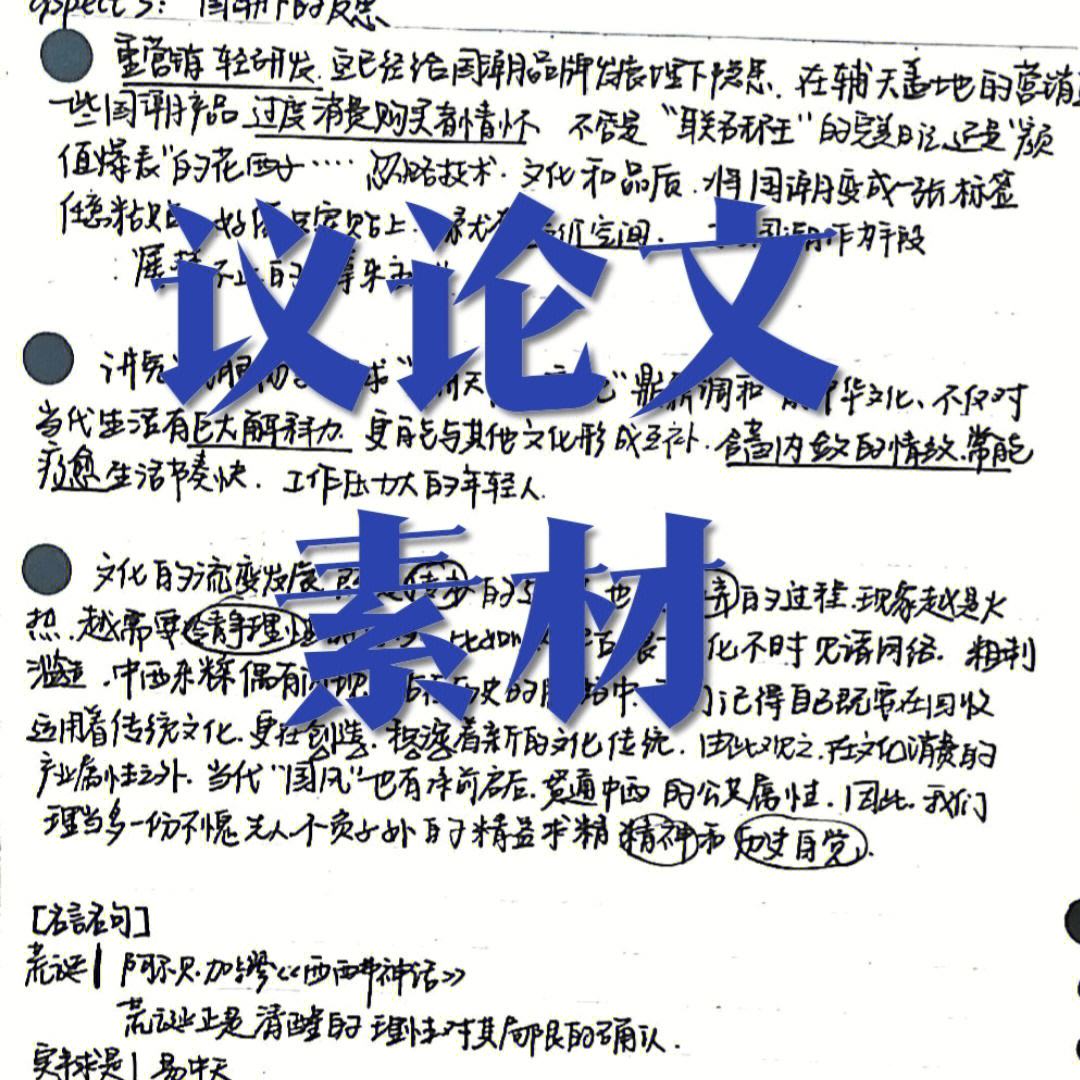 aspect 3: 国潮下的反思
重营销轻研发.这已经给国潮品牌发展埋下隐患.在铺天盖地的营销
一些国潮产品过度消费购买者情怀 不管是“联名狂王”的完美日记还是“颜
值爆表”的花西子…… 忽略技术.文化和品质.将国潮变成一张标签
任意粘贴 贴上. 空间. 国潮作为手段
议论文
讲究 鼎新调和 中华文化、不仅对
当代生活有巨大解释力.更能与其他文化形成互补.含蓄内敛的情致.常能
疗愈生活节奏快.工作压力大的年轻人.
素材
文化的流变发展 的过程.现象越是火
热.越需要冷静理性 化不时见诸网络.粗制
滥造.中西杂糅偶有 历史的 中. 记得自己既要在回收
运用着传统文化.更在创造.积淀着新的文化传统.由此观之.在文化消费的
产业属性之外.当代“国风”也有承前启后.贯通中西的公共属性.因此.我们
理当多一份不愧先人不负子孙的精益求精精神和历史自觉.
[名言名句]
荒诞|阿尔贝.加缪《西西弗神话》
荒诞正是清醒的理性对其局限的确认.
实事求是|易中天